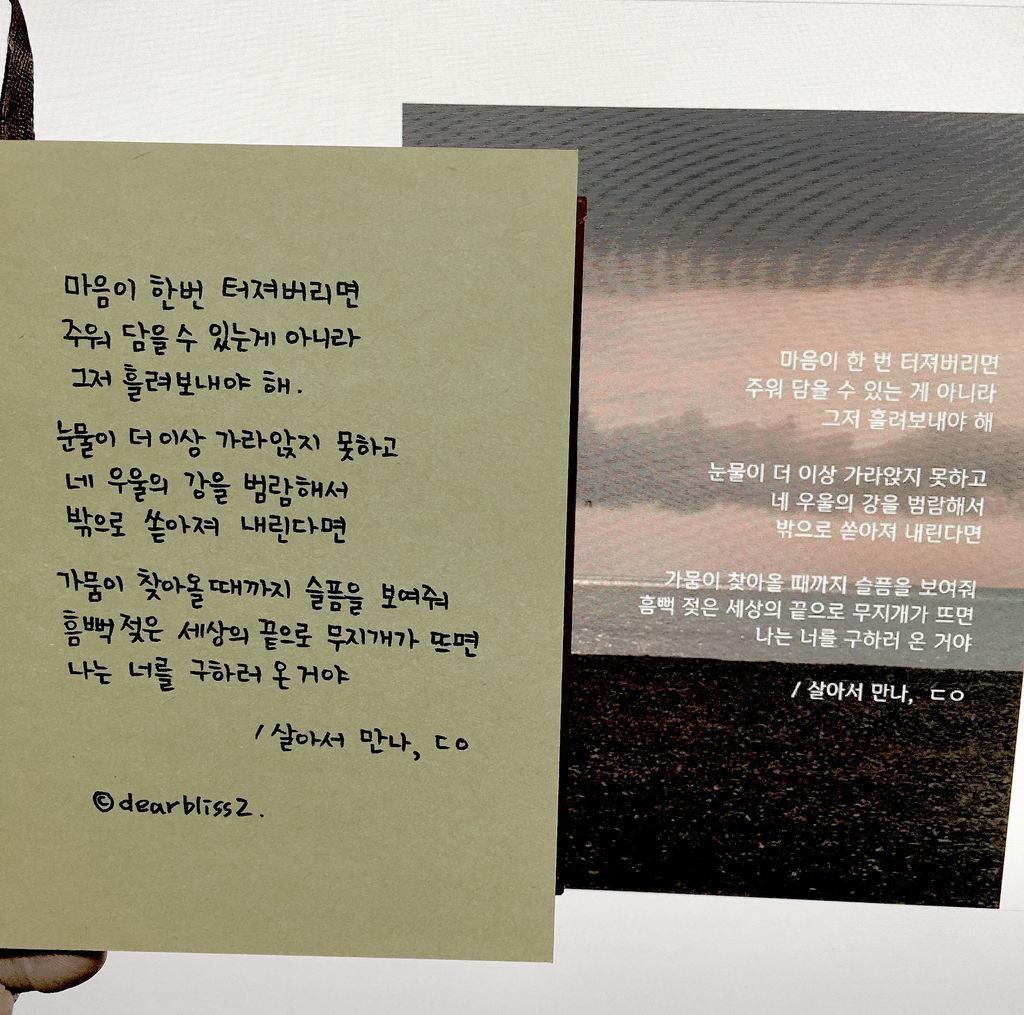 마음이 한번 터져버리면
주워 담을 수 있는게 아니라
그저 흘려보내야 해.
눈물이 더 이상 가라앉지 못하고
네 우울의 강을 범람해서
밖으로 쏟아져 내린다면
가뭄이 찾아올 때까지 슬픔을 보여줘
흠뻑 젖은 세상의 끝으로 무지개가 뜨면
나는 너를 구하러 온 거야
/ 살아서 만나, ㄷㅇ
©dearbliss2.
마음이 한 번 터져버리면
주워 담을 수 있는 게 아니라
그저 흘려보내야 해
눈물이 더 이상 가라앉지 못하고
네 우울의 강을 범람해서
밖으로 쏟아져 내린다면
가뭄이 찾아올 때까지 슬픔을 보여줘
흠뻑 젖은 세상의 끝으로 무지개가 뜨면
나는 너를 구하러 온 거야
/ 살아서 만나, ㄷㅇ